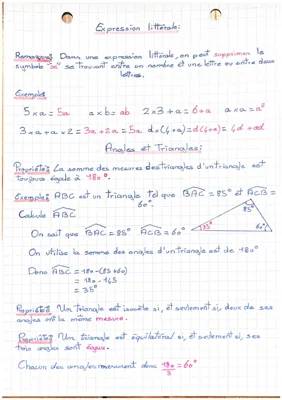 Expression littérale:
Remarque: Dans une expression littérale, on peut supprimer le
symbole "x" se trouvant entre un nombre et une lettre ou entre deux
lettres.
Exemple:
5 x a = 5a a x b = ab 2 x 3 + a = 6 + a a x a = a²
3 x a + a x 2 = 3a + 2a = 5a d x (4+a) = d(4+a) = 4d + ad
Angles et Triangles:
Propriété: La somme des mesures des triangles d'un triangle est
toujours égale à 180°.
Exemple: ABC est un triangle tel que BAC = 85° et ACB =
60°.
Calcule ABC
85°
On sait que BAC = 85° ACB = 60°
35°
60°
On utilise la somme des angles d'un triangle est de 180°
Donc ABC = 180 - (85+60)
= 180 - 145
= 35°
Propriété: Un triangle est isocèle si, et seulement si, deux de ses
angles ont la même mesure.
Propriété: Un triangle est équilatéral si, et seulement si, ses
trois angles sont égaux.
Chacun des angles mesurent donc 180/3 = 60°